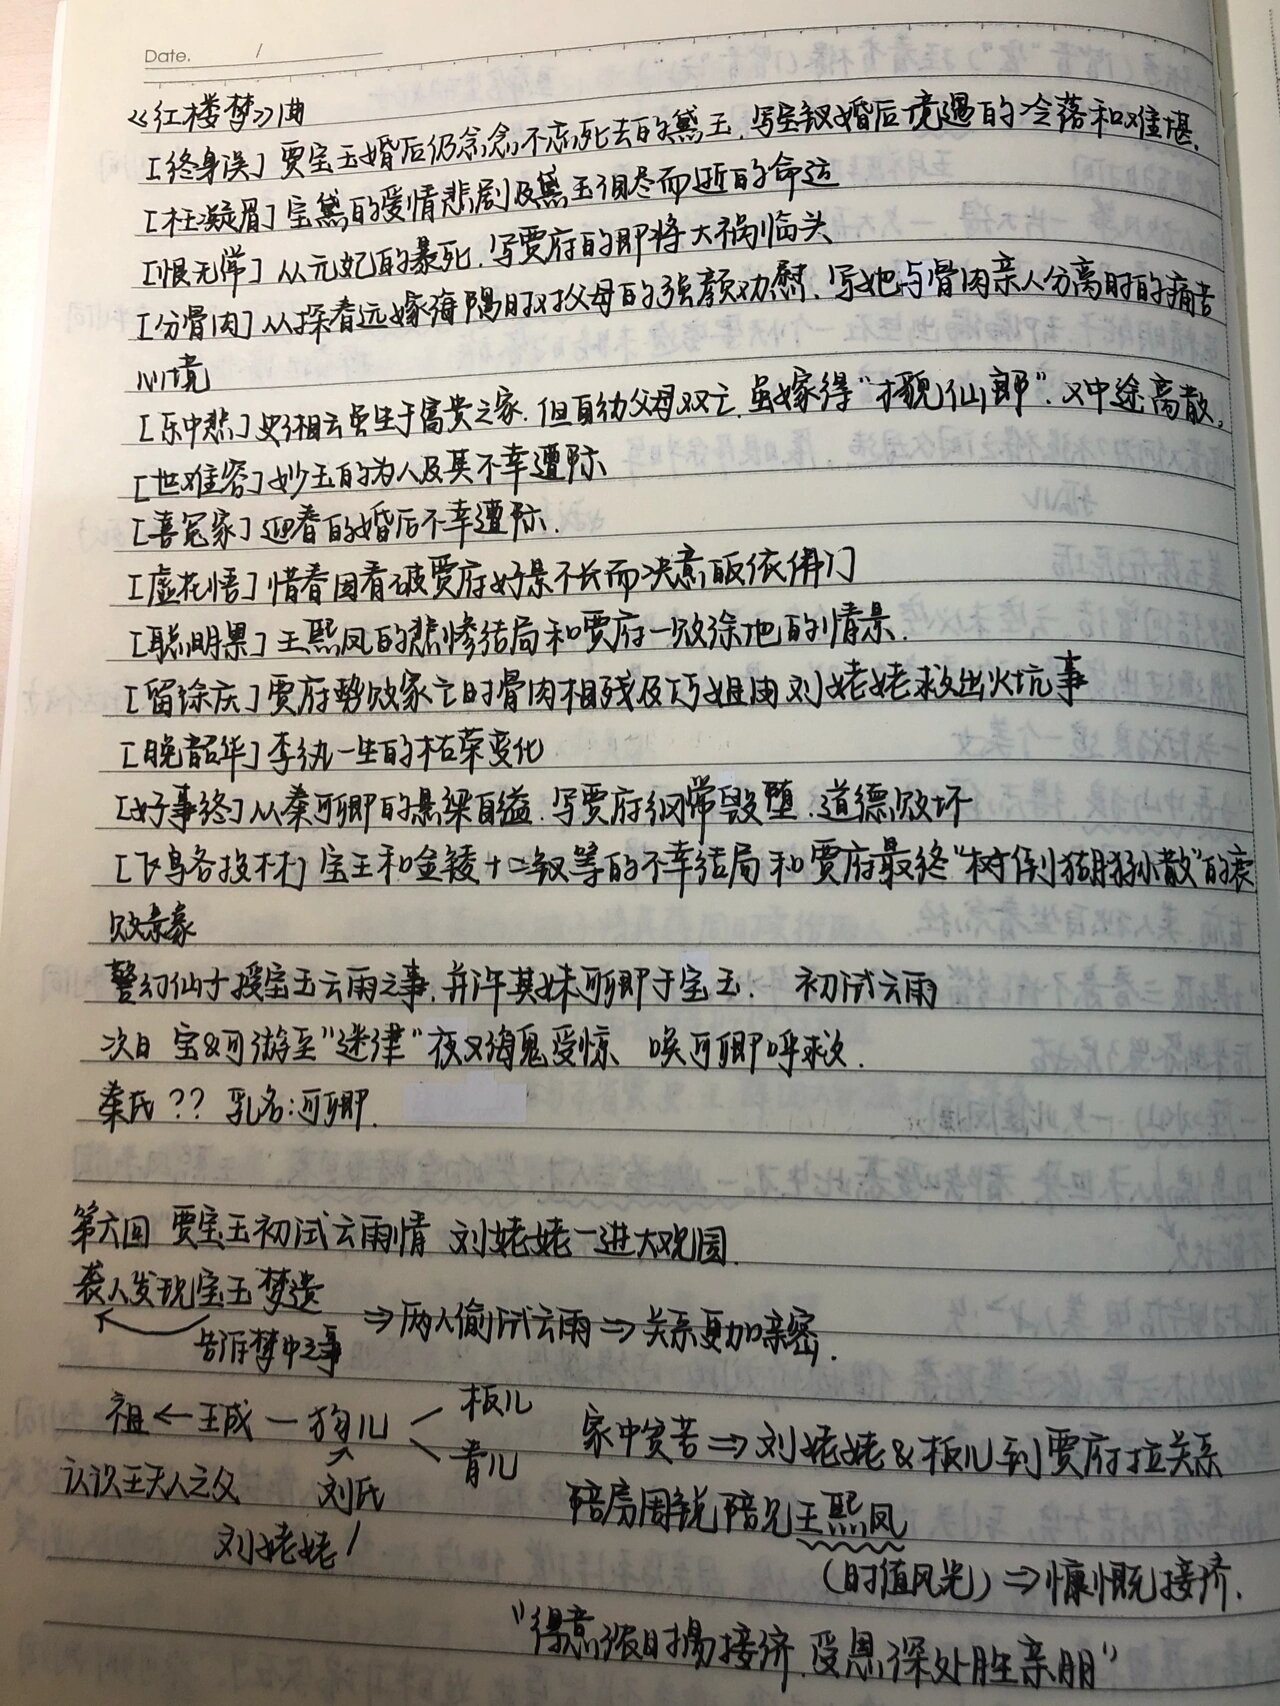 Date. /
《红楼梦》曲
[终身误] 贾宝玉婚后仍念念不忘死去的黛玉,写宝钗婚后境遇的冷落和难堪.
[枉凝眉] 宝黛的爱情悲剧及黛玉泪尽而逝的命运
[恨无常] 从元妃的暴死,写贾府的即将大祸临头
[分骨肉] 从探春远嫁海隅时对父母的强颜劝慰,写她与骨肉亲人分离时的痛苦
心境
[乐中悲] 史湘云虽生于富贵之家,但自幼父母双亡,虽嫁得“才貌仙郎”,又中途离散。
[世难容] 妙玉的为人及其不幸遭际
[喜冤家] 迎春的婚后不幸遭际.
[虚花悟] 惜春因看破贾府好景不长而决意皈依佛门
[聪明累] 王熙凤的悲惨结局和贾府一败涂地的情景.
[留馀庆] 贾府势败家亡时骨肉相残及巧姐由刘姥姥救出火坑事
[晚韶华] 李纨一生的枯荣变化
[好事终] 从秦可卿的悬梁自缢,写贾府纲常毁堕,道德败坏
[飞鸟各投林] 宝玉和金陵十二钗等的不幸结局和贾府最终“树倒猢狲散”的衰
败景象
警幻仙子授宝玉云雨之事,并许其妹可卿于宝玉. 初试云雨
次日 宝&可游至“迷津” 夜叉海鬼受惊 唤可卿呼救.
秦氏?? 乳名:可卿.
第六回 贾宝玉初试云雨情 刘姥姥一进大观园
袭人发现宝玉梦遗
⇒两人偷试云雨⇒关系更加亲密.
告诉梦中之事
祖←王成—狗儿
板儿
青儿
家中贫苦⇒刘姥姥&板儿到贾府拉关系
认识王夫人之父 刘氏
陪房周瑞陪见王熙凤
刘姥姥
(时值风光)⇒慷慨接济.
“得意浓时易接济,受恩深处胜亲朋”